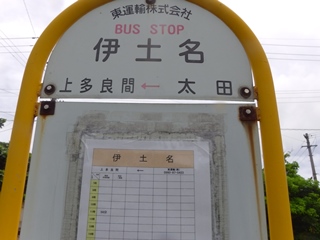 東運輸株式会社
BUS STOP
伊土名
上多良間 ← 太田
伊土名
上多良間